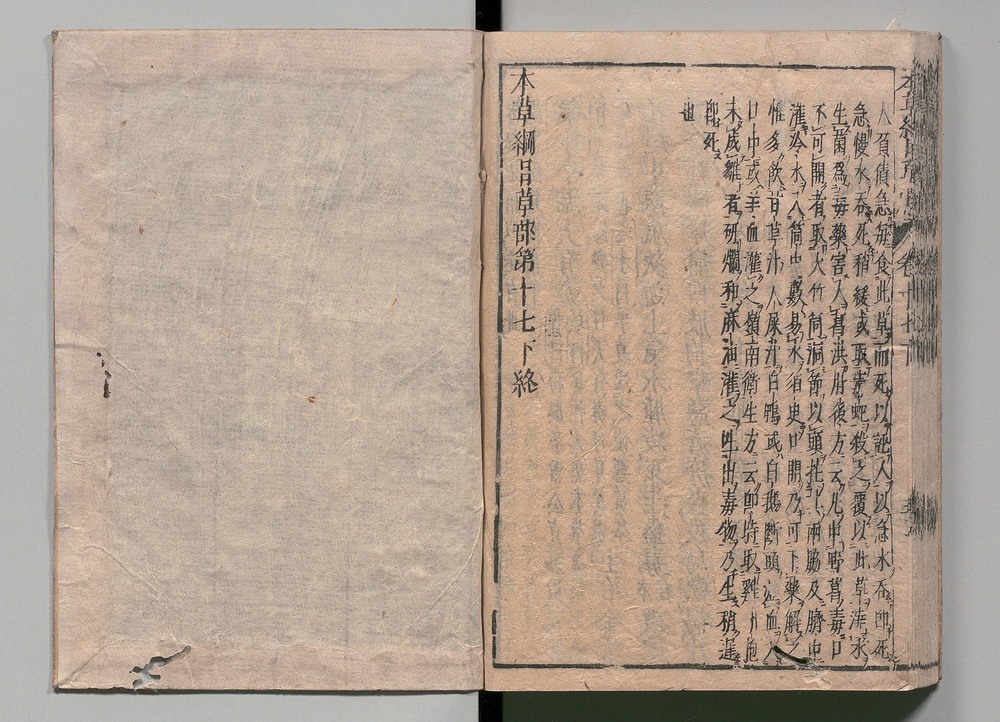 人負債急每食此草而死以訟人以急水吞即死
急慢水吞死稍緩或取毒蛇殺之覆以此草澆水
生菌爲毒藥害人葛洪肘後方云凡中野葛毒口
不可開者取大竹筒洞節以頭拄其兩脇及臍中
灌冷水入筒中數易水須臾口開乃可下藥解之
惟多飲甘草汁人屎汁白鴨或白鵝斷頭瀝血入
口中或羊血灌之嶺南衛生方云即時取雞卵抱
未成雛者研爛和麻油灌之吐出毒物乃生稍遲
即死
也
本草綱目草部第十七下終